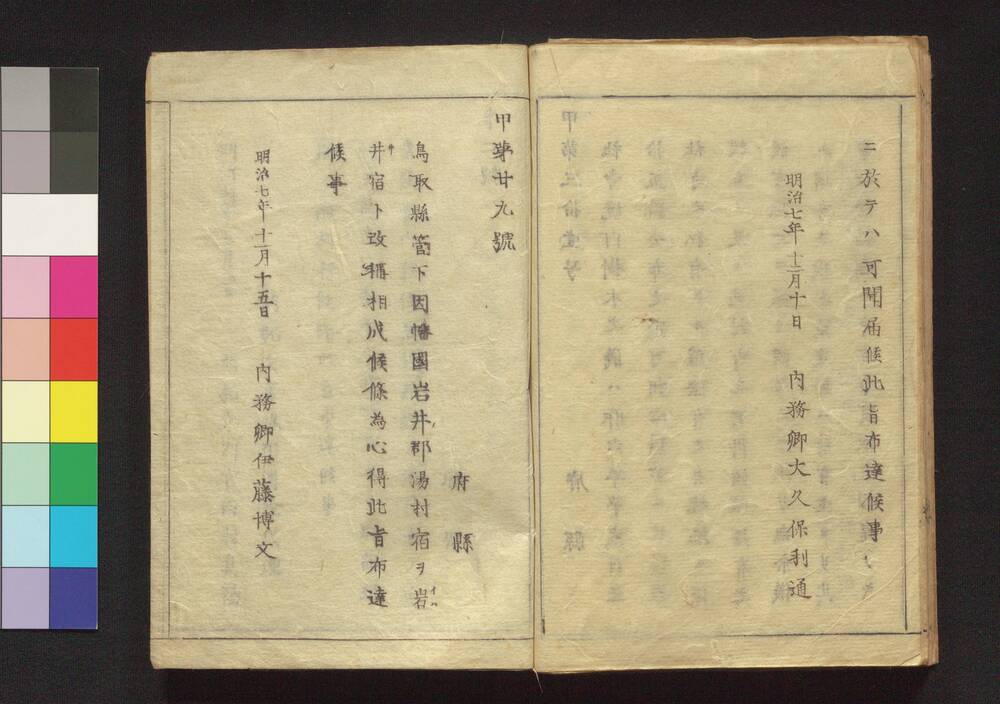 ニ於テハ可聞届候此旨布達候事
明治七年十二月十日 内務卿大久保利通
甲第廿九號
府縣
鳥取縣管下因幡國岩井郡湯村宿ヲ岩
井宿ト改稱相成候條為心得此旨布達
候事
明治七年十二月十五日 内務卿伊藤博文